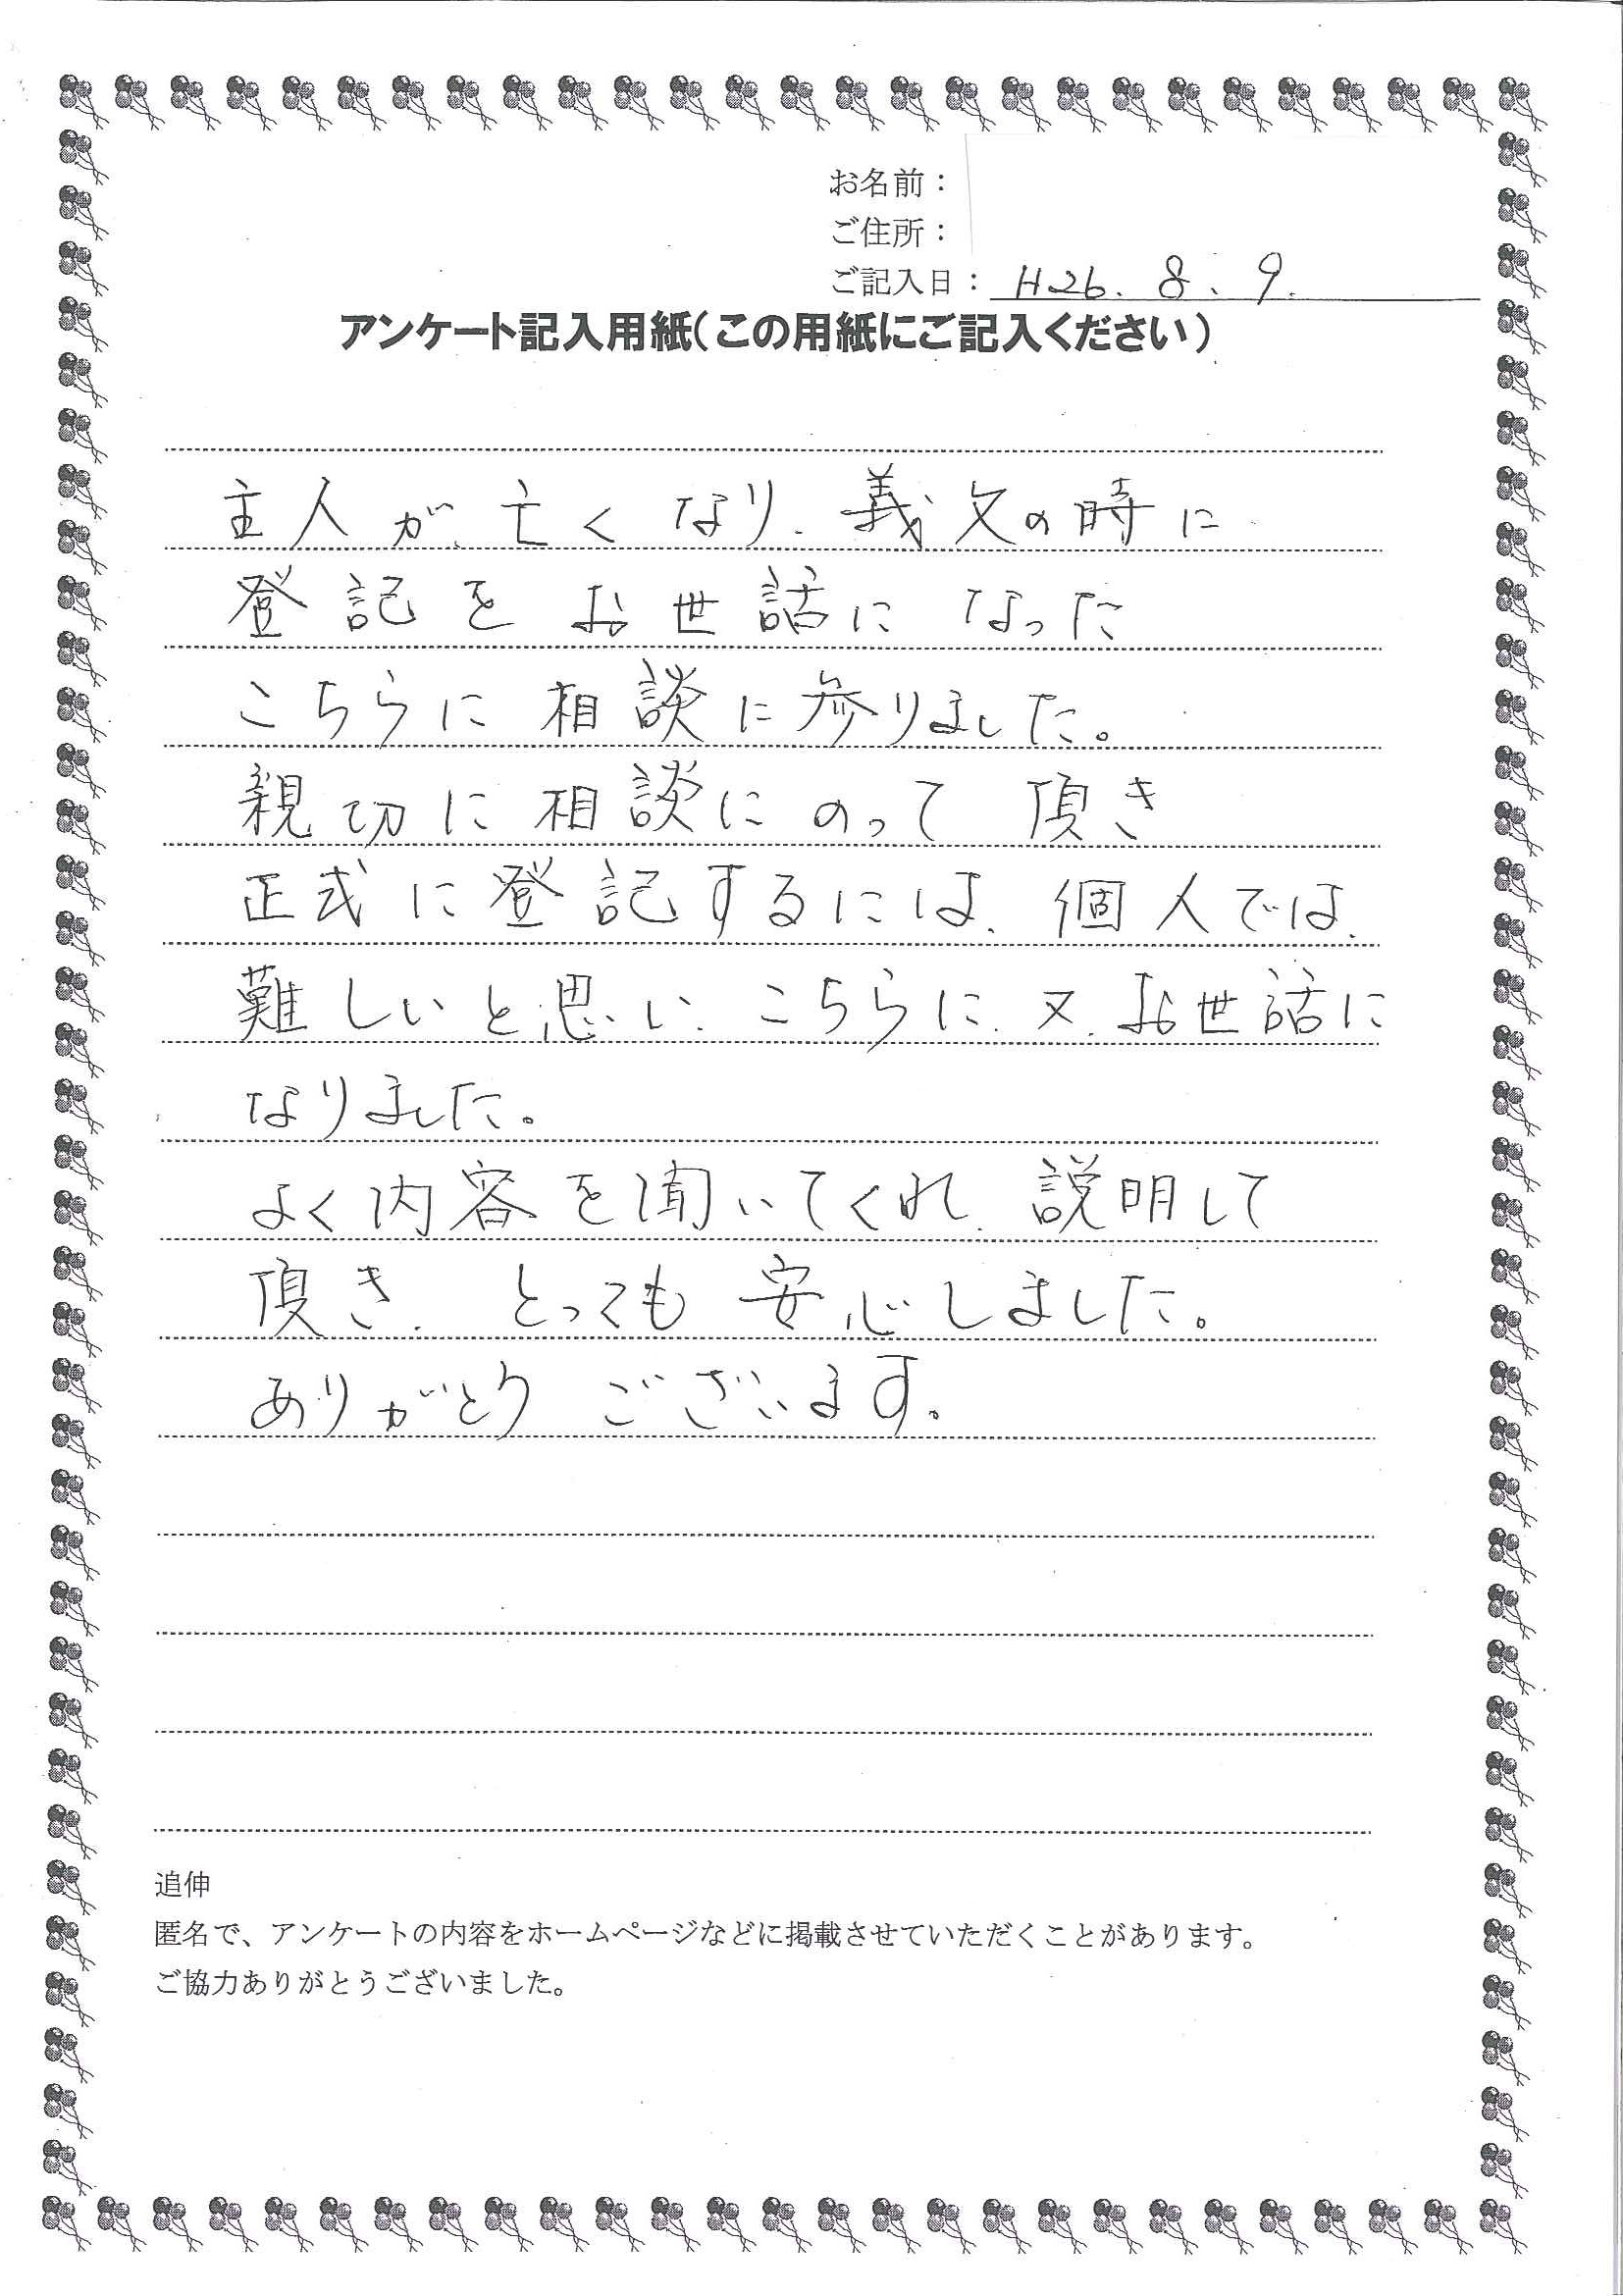 お名前：
ご住所：
ご記入日：H26.8.9.
アンケート記入用紙（この用紙にご記入ください）
主人が、亡くなり、義父の時に
登記をお世話になった
こちらに相談に参りました。
親切に相談にのって頂き
正式に登記するには、個人では、
難しいと思い、こちらに、又、お世話に
なりました。
よく内容を聞いてくれ、説明して
頂き、とっても安心しました。
ありがとうございます。
追伸
匿名で、アンケートの内容をホームページなどに掲載させていただくことがあります。
ご協力ありがとうございました。